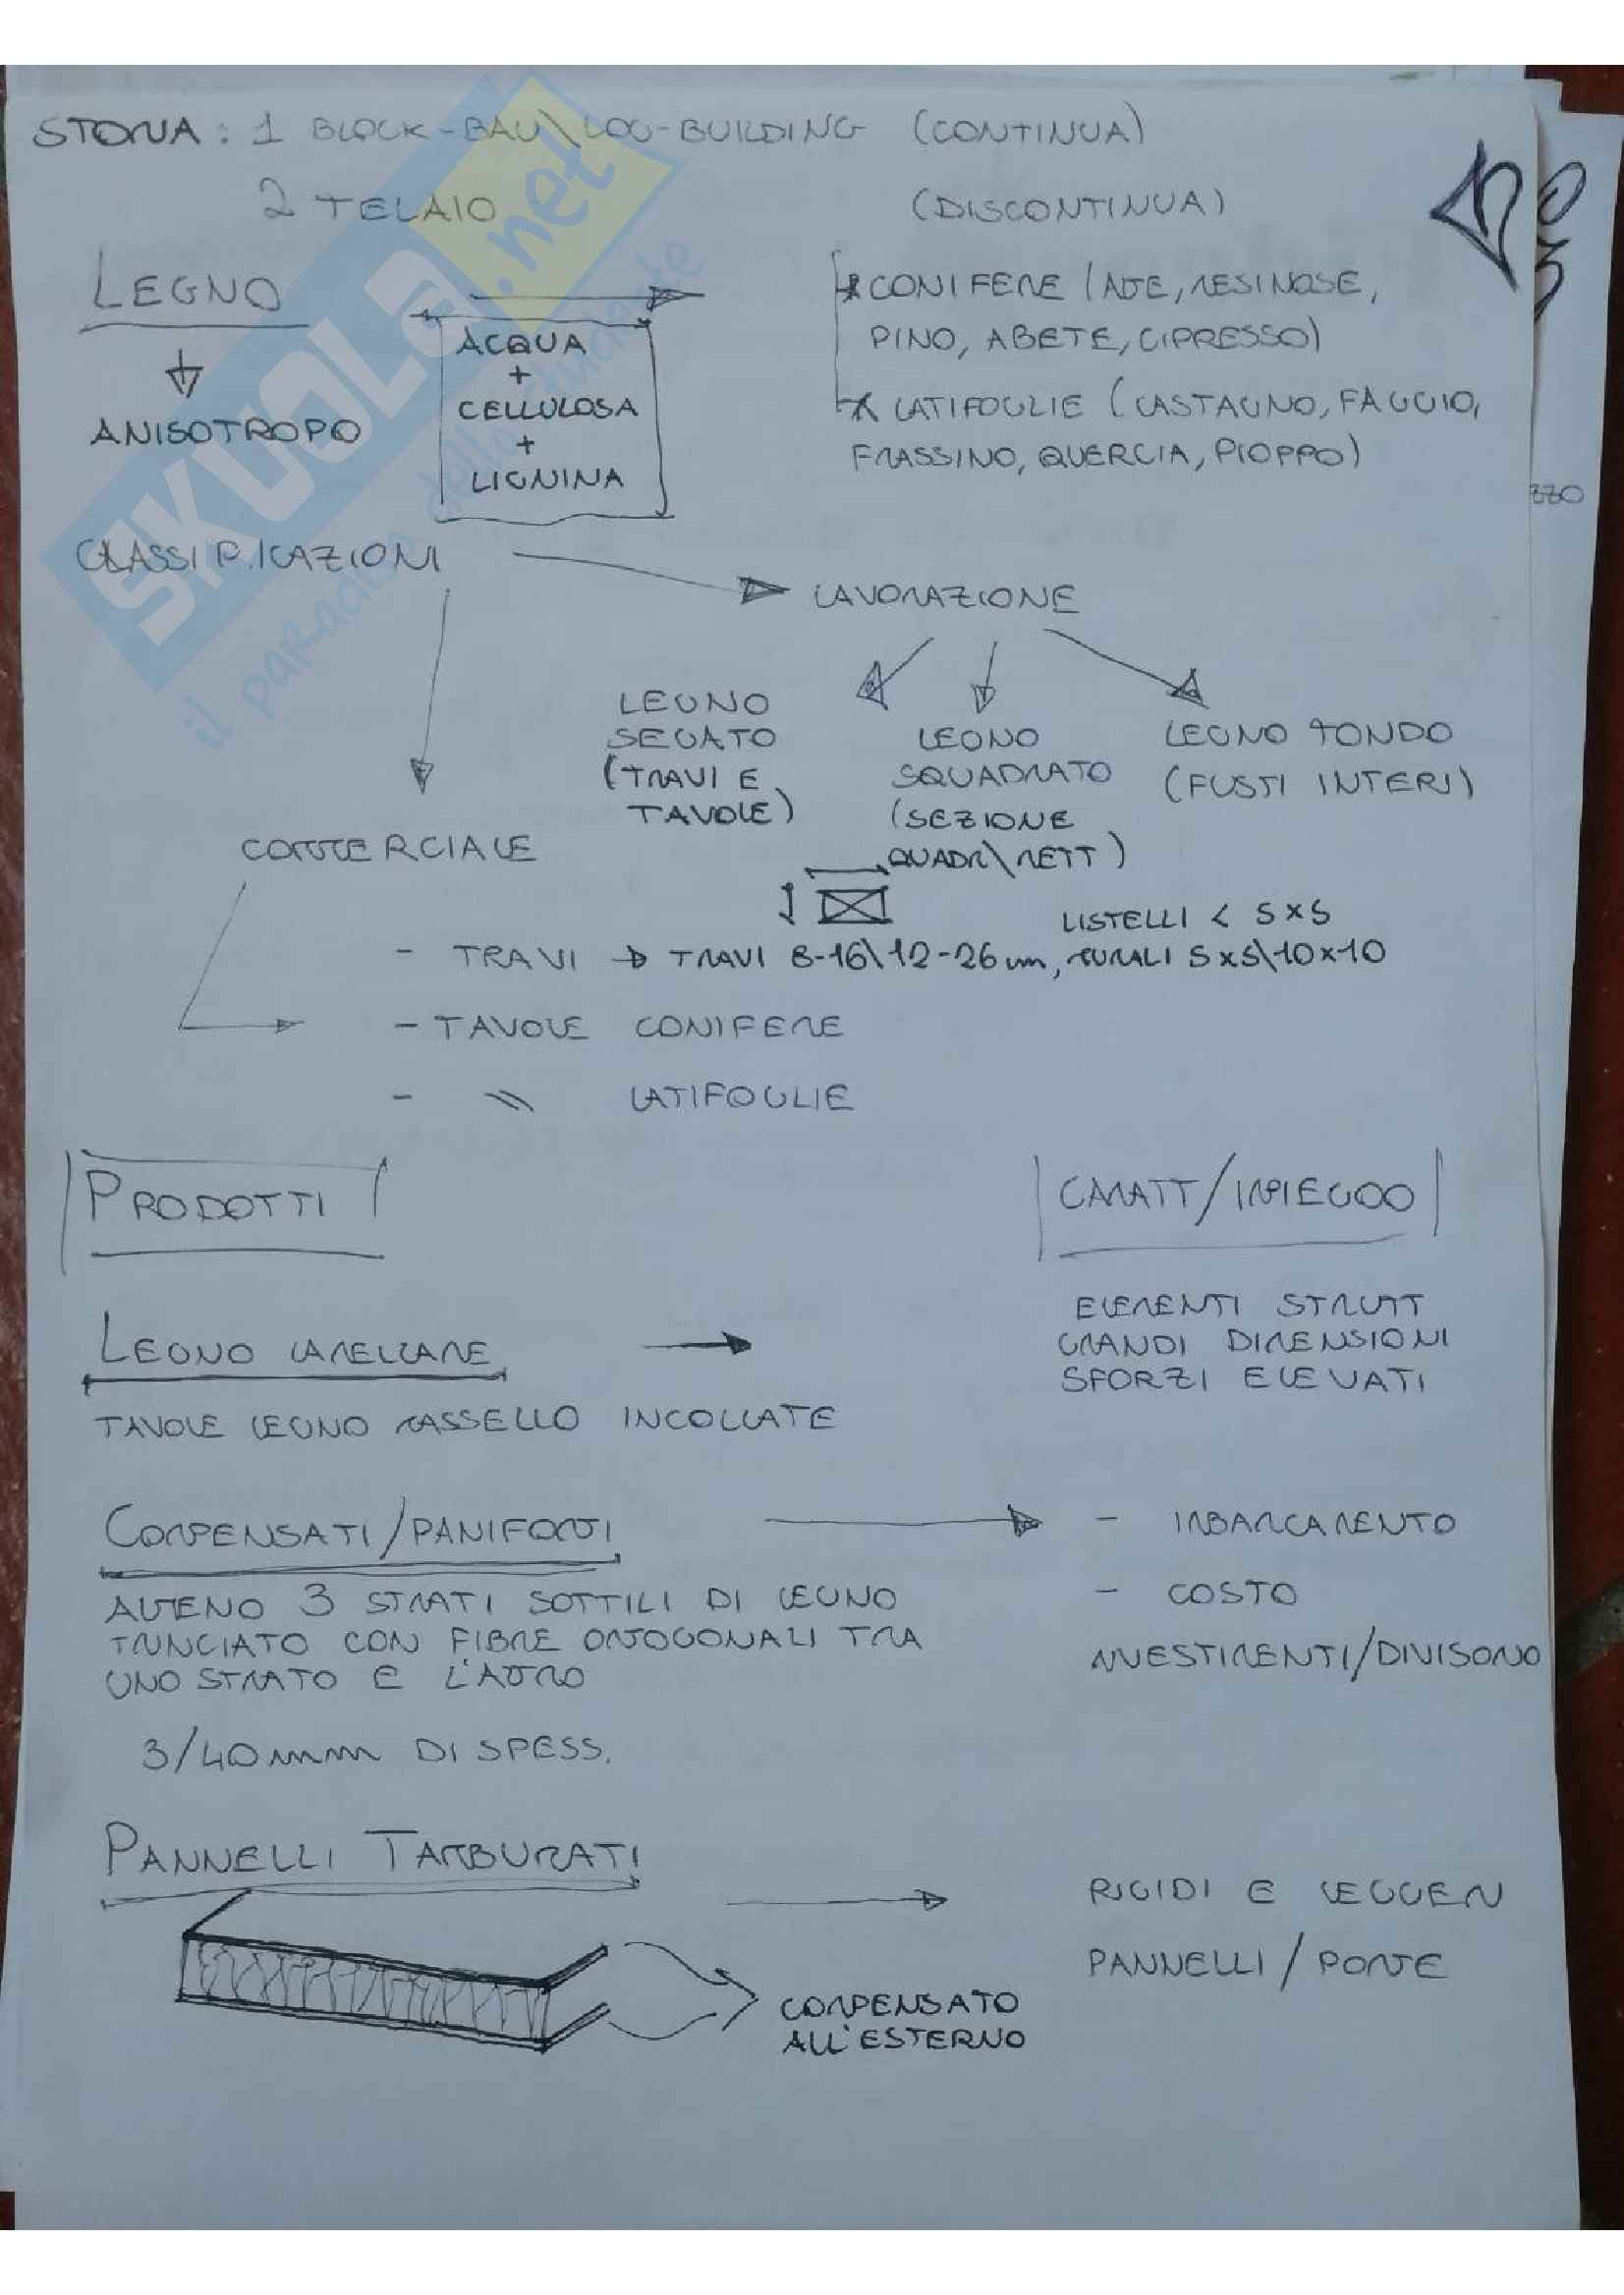 STORIA : 1 BLOCK-BAU\LOG-BUILDING (CONTINUA)
2 TELAIO (DISCONTINUA)
LEGNO
CONIFERE (
, RESINOSE,
PINO, ABETE, CIPRESSO)
ACQUA
+
CELLULOSA
+
LIGNINA
ANISOTROPO
LATIFOGLIE (CASTAGNO, FAGGIO,
FRASSINO, QUERCIA, PIOPPO)
CLASSIFICAZIONI
LAVORAZIONE
LEGNO
SEGATO
(TRAVI E
TAVOLE)
LEGNO
SQUADRATO
(SEZIONE
QUADR\RETT)
LEGNO TONDO
(FUSTI INTERI)
COMMERCIALE
LISTELLI < 5x5
- TRAVI → TRAVI 8-16\12-26 cm, MURALI 5x5\10x10
- TAVOLE CONIFERE
- \\ LATIFOGLIE
PRODOTTI
CARATT/IMPIEGO
LEGNO LAMELLARE
ELEMENTI STRUTT
GRANDI DIMENSIONI
SFORZI ELEVATI
TAVOLE LEGNO MASSELLO INCOLLATE
COMPENSATI/PANIFORTI
- IMBARCAMENTO
- COSTO
RIVESTIMENTI/DIVISORIO
ALMENO 3 STRATI SOTTILI DI LEGNO
TRANCIATO CON FIBRE ORTOGONALI TRA
UNO STRATO E L'ALTRO
3/40 mm DI SPESS.
PANNELLI TAMBURATI
RIGIDI E LEGGERI
PANNELLI/PORTE
COMPENSATO
ALL'ESTERNO
SKUOLA.net
il paradiso dello studente